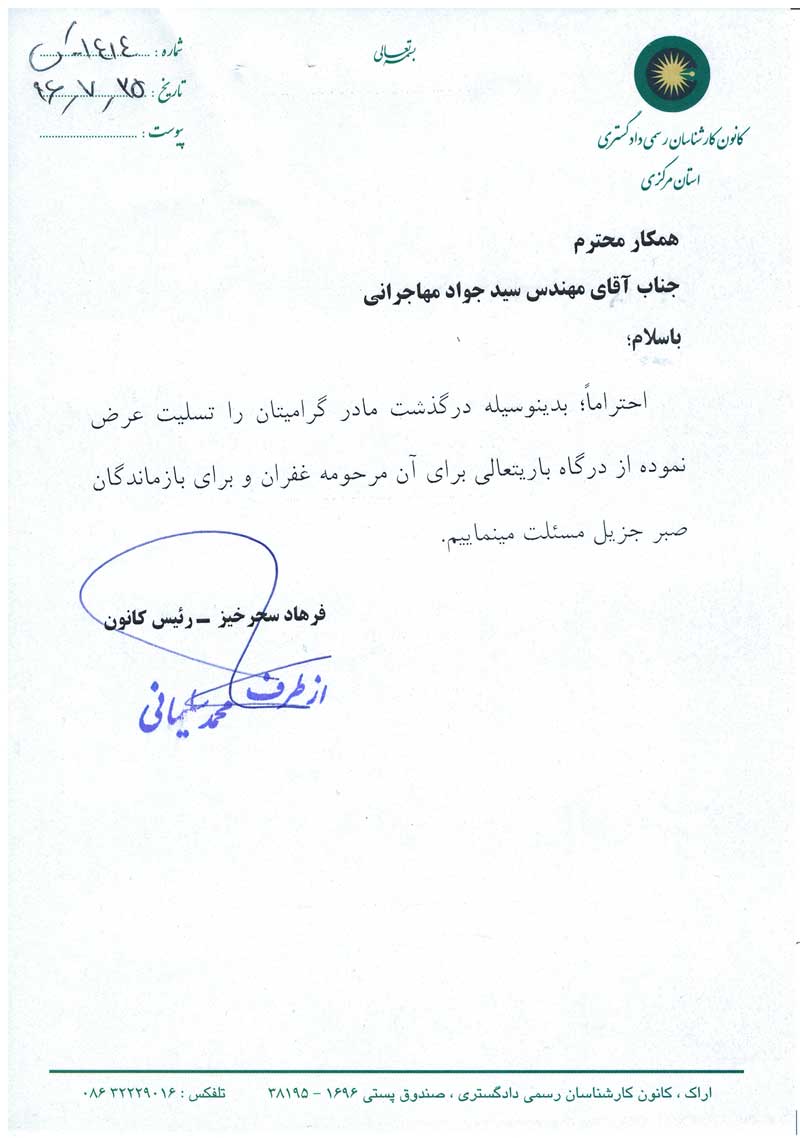 بسمه تعالی
کانون کارشناسان رسمی دادگستری
استان مرکزی
شماره : ۱۴۱۴-
تاریخ : ۹۶٫۷٫۲۵
پیوست :
همکار محترم
جناب آقای مهندس سید جواد مهاجرانی
باسلام؛
احتراماً؛ بدینوسیله درگذشت مادر گرامیتان را تسلیت عرض
نموده از درگاه باریتعالی برای آن مرحومه غفران و برای بازماندگان
صبر جزیل مسئلت مینماییم.
فرهاد سحرخیز – رئیس کانون
از طرف
محمد سلیمانی
اراک ، کانون کارشناسان رسمی دادگستری ، صندوق پستی ۱۶۹۶ - ۳۸۱۹۵ تلفکس : ۰۸۶ ۳۲۲۲۹۰۱۶